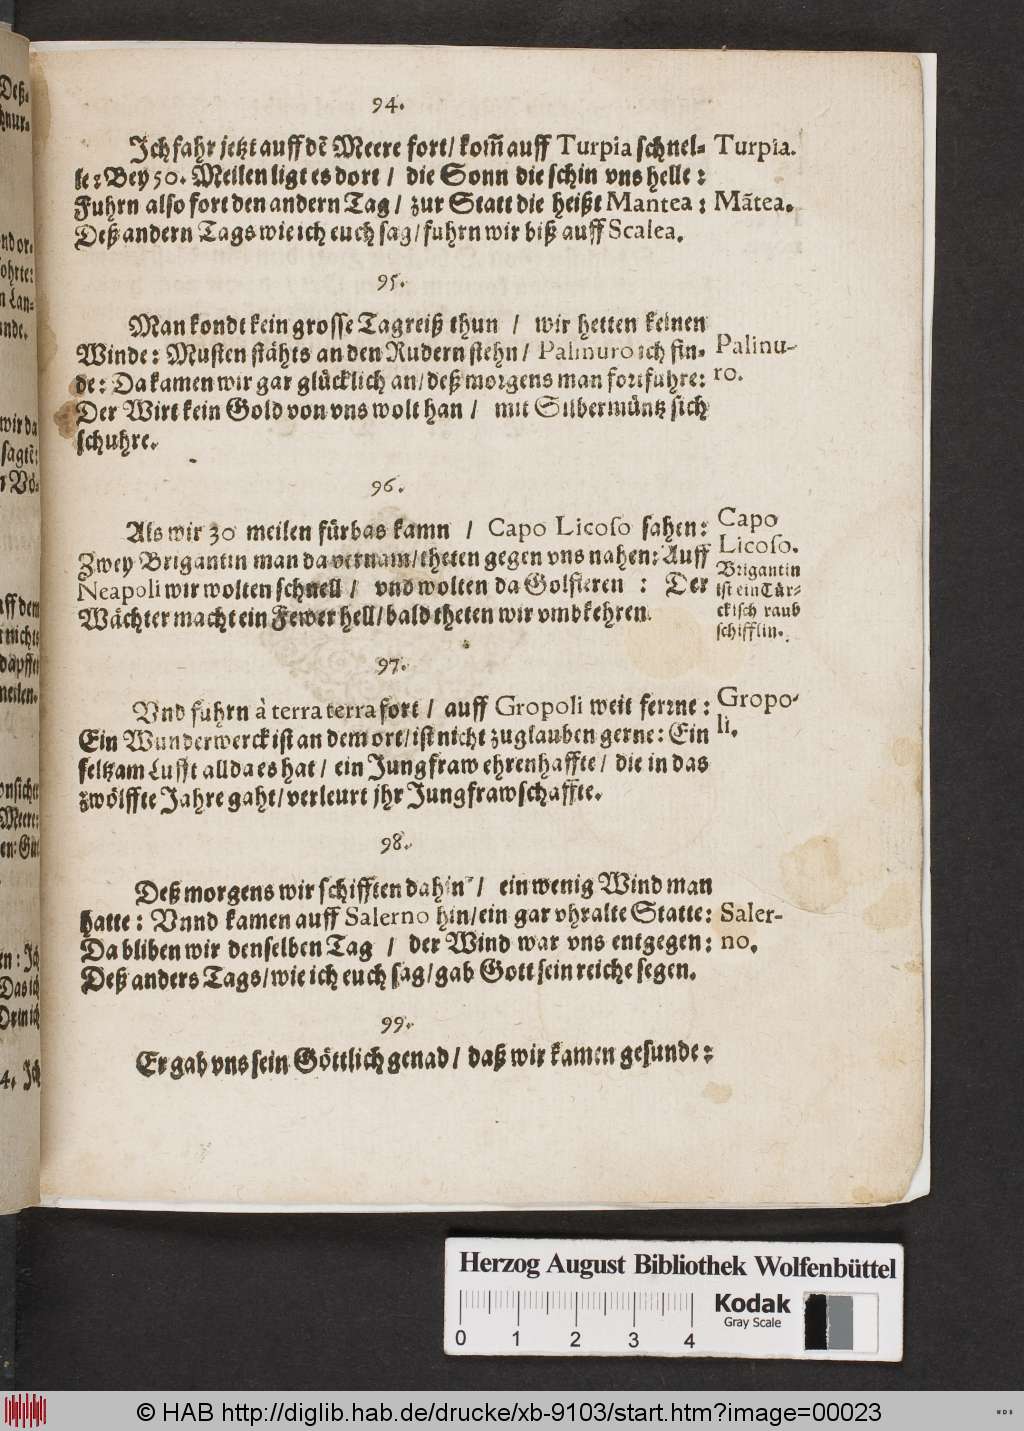 94.
Ich fahr jetzt auff dẽ Meere fort/ kom̃ auff Turpia schnel-
le: Bey 50. Meilen ligt es dort / die Sonn die schin vns helle:
Fuhrn also fort den andern Tag / zur Statt die heißt Mantea:
Deß andern Tags wie ich euch sag/ fuhrn wir biß auff Scalea.
Turpia.
Mãtea.
95.
Man kondt kein grosse Tagreiß thun / wir hetten keinen
Winde: Musten stähts an den Rudern stehn/ Palinuro ich fin-
de: Da kamen wir gar glücklich an/ deß morgens man fortfuhre:
Der Wirt kein Gold von vns wolt han / mit Silbermüntz sich
schuhre.
Palinu-
ro.
96.
Als wir 30 meilen fürbas kamn / Capo Licoso sahen:
Zwey Brigantin man da vernam/ theten gegen vns nahen: Auff
Neapoli wir wolten schnell / vnd wolten da Golfieren : Der
Wächter macht ein Fewer hell/ bald theten wir vmbkehren.
Capo
Licoso.
Brigantin
ist ein Tür-
ckisch raub
schifflin.
97.
Vnd fuhrn à terra terra fort / auff Gropoli weit ferrne:
Ein Wunderwerck ist an dem ort/ ist nicht zuglauben gerne: Ein
seltzam Lufft allda es hat / ein Jungfraw ehrenhaffte / die in das
zwölffte Jahre gaht/ verleurt jhr Jungfrawschaffte.
Gropo-
li.
98.
Deß morgens wir schifften dahin / ein wenig Wind man
hatte: Vnnd kamen auff Salerno hin/ ein gar vhralte Statte:
Da bliben wir denselben Tag / der Wind war vns entgegen:
Deß anders Tags/ wie ich euch sag/ gab Gott sein reiche segen.
Saler-
no.
99.
Er gab vns sein Göttlich genad/ daß wir kamen gesunde:
Herzog August Bibliothek Wolfenbüttel
0 1 2 3 4
Kodak
Gray Scale
© HAB http://diglib.hab.de/drucke/xb-9103/start.htm?image=00023